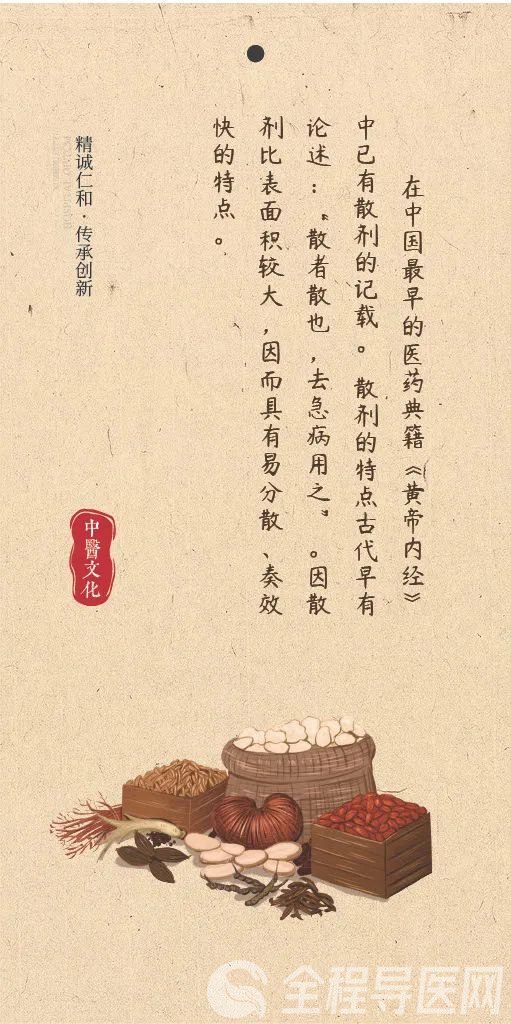 在中国最早的医药典籍《黄帝内经》
中已有散剂的记载。散剂的特点古代早有
论述：“散者散也，去急病用之”。因散
剂比表面积较大，因而具有易分散、奏效
快的特点。
精诚仁和·传承创新
中醫文化
全程导医网